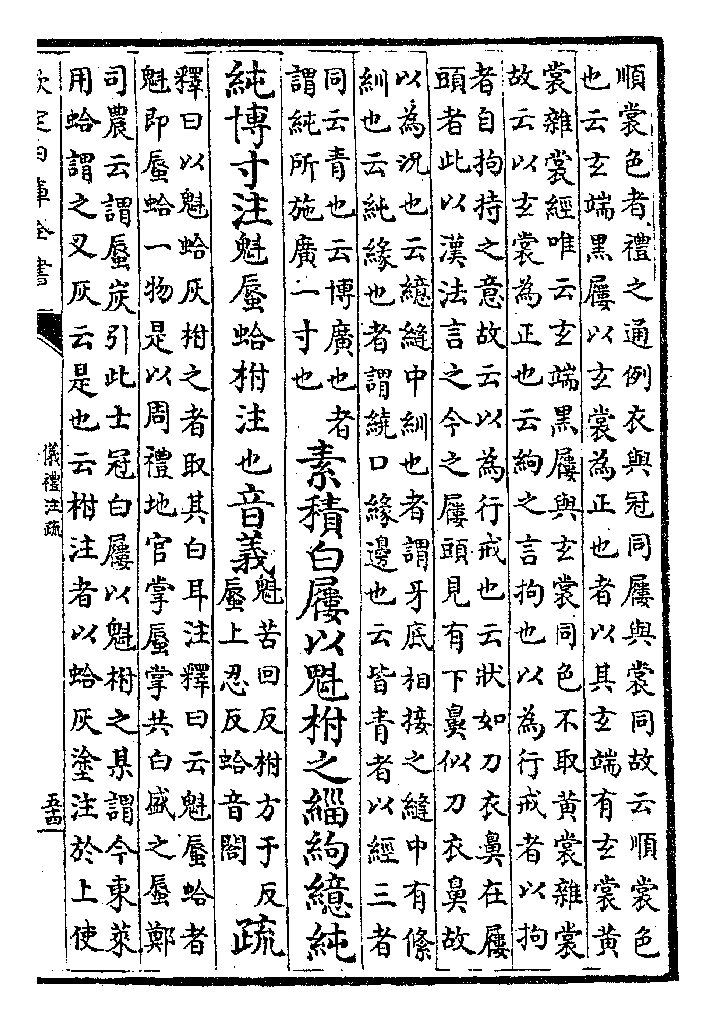 順裳色者禮之通例衣與冠同屨與裳同故云順裳色
也云玄端黑屨以玄裳為正也者以其玄端有玄裳黄
裳雜裳經唯云玄端黑屨與玄裳同色不取黄裳雜裳
故云以玄裳為正也云絇之言拘也以為行戒者以拘
者自拘持之意故云以為行戒也云狀如刀衣鼻在屨
頭者此以漢法言之今之屨頭見有下鼻似刀衣鼻故
以為況也云繶縫中紃也者謂牙底相接之縫中有絛
紃也云純緣也者謂繞口緣邊也云皆青者以經三者
同云青也云博廣也者
謂純所施廣一寸也
素積白屨以魁柎之緇絇繶純
純博寸注魁蜃蛤柎注也音義
魁苦回反柎方于反
蜃上忍反蛤音閤
疏
釋曰以魁蛤灰柎之者取其白耳注釋曰云魁蜃蛤者
魁即蜃蛤一物是以周禮地官掌蜃掌共白盛之蜃鄭
司農云謂蜃炭引此士冠白屨以魁柎之某謂今東萊
用蛤謂之叉灰云是也云柎注者以蛤灰塗注於上使
欽定四庫全書
儀禮注疏
五十四